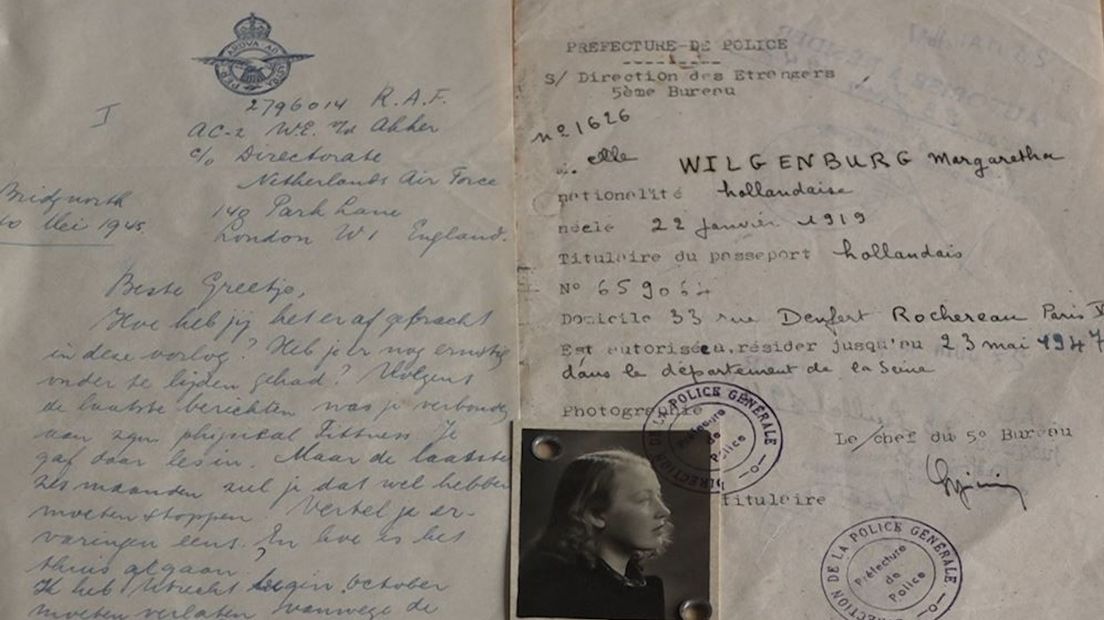 PER ARDVA AD ASTRA
I
2796014 R.A.F.
AC-2 W.E. v/d Akker
c/o Directorate
Netherlands Air Force
140 Park Lane
London W1 England.
Bridgnorth
10 Mei 1945.
Beste Greetje,
Hoe heb jij het er af gebracht
in deze oorlog? Heb je er nog ernstig
onder te lijden gehad? Volgens
de laatste berichten was je verbonden
aan zgn physical Fittness. Je
gaf daar les in. Maar de laatste
zes maanden zul je dat wel hebben
moeten stoppen. Vertel je er-
varingen eens. En hoe is het
thuis gegaan?
Ik heb Utrecht begin october
moeten verlaten vanwege de
PREFECTURE-DE POLICE
S/ Direction des Etrangers
5ème Bureau
n° 1626
elle WILGENBURG Margaretha
nationalité hollandaise
née le 22 janvier 1919
Titulaire du passeport hollandais
N° 659064
Domicile 33 rue Denfert Rochereau Paris V
Est autorisée à résider jusqu'au 23 mai 1947
dans le département de la Seine
Photographie
Le chef du 5° Bureau
titulaire
DIRECTION DE LA POLICE GÉNÉRALE
Préfecture
de
Police
DIRECTION DE LA POLICE GÉNÉRALE
Préfecture
de
Police